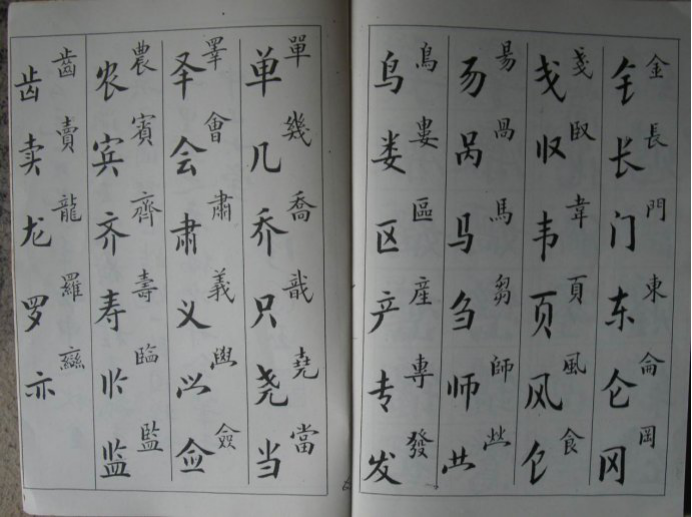 钅金 长長 门門 东東 仑侖 冈岡
戋戔 臤 韦韋 页頁 风風 饣食
𠃓昜 呙咼 马馬 刍芻 师師
鸟鳥 娄婁 区區 产産 专專 发發
单單 几幾 乔喬 只戠 尧堯 当當
睪 会會 肃肅 义義 佥僉
农農 宾賓 齐齊 寿壽 监監
齿齒 卖賣 龙龍 罗羅 亦䜌